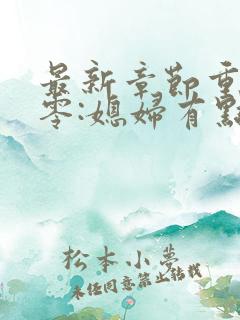 最新章節重
零:媳婦有點
松本小夢
未經同意禁止轉載